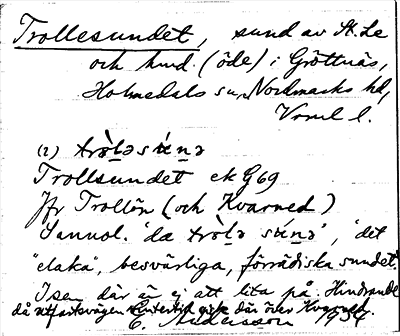 Trollesundet, sund av St. Le
och hmd. (öde) i Gröttnäs,
Holmedals sn, Nordmarks hd,
Vrml l.
(2) trò̀l̥ə súnə
Trollsundet ek G69
Jfr Trollön (och Kvarned)
Sannol. "da trò̀l̥ə súnə", "det
"elaka", besvärliga, förrädiska sundet."
Isen där är ej att lita på. Hindrande
då utfartsvägen vintertid gick där över